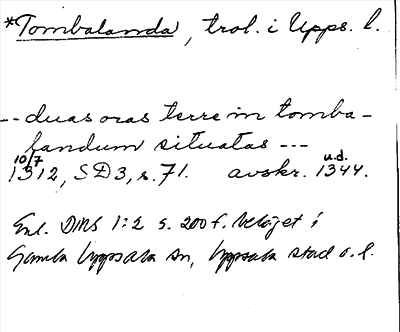 *Tombalanda, trol. i Upps. l.
-- duas oras terre in tomba-
fandum situatas ---
10/7 u.d.
1312, SD3, s. 71. avskr. 1344.
Enl. DMS 1:2 s. 200 f. beläget i
Gamla Uppsala sn, Uppsala stad o. l.